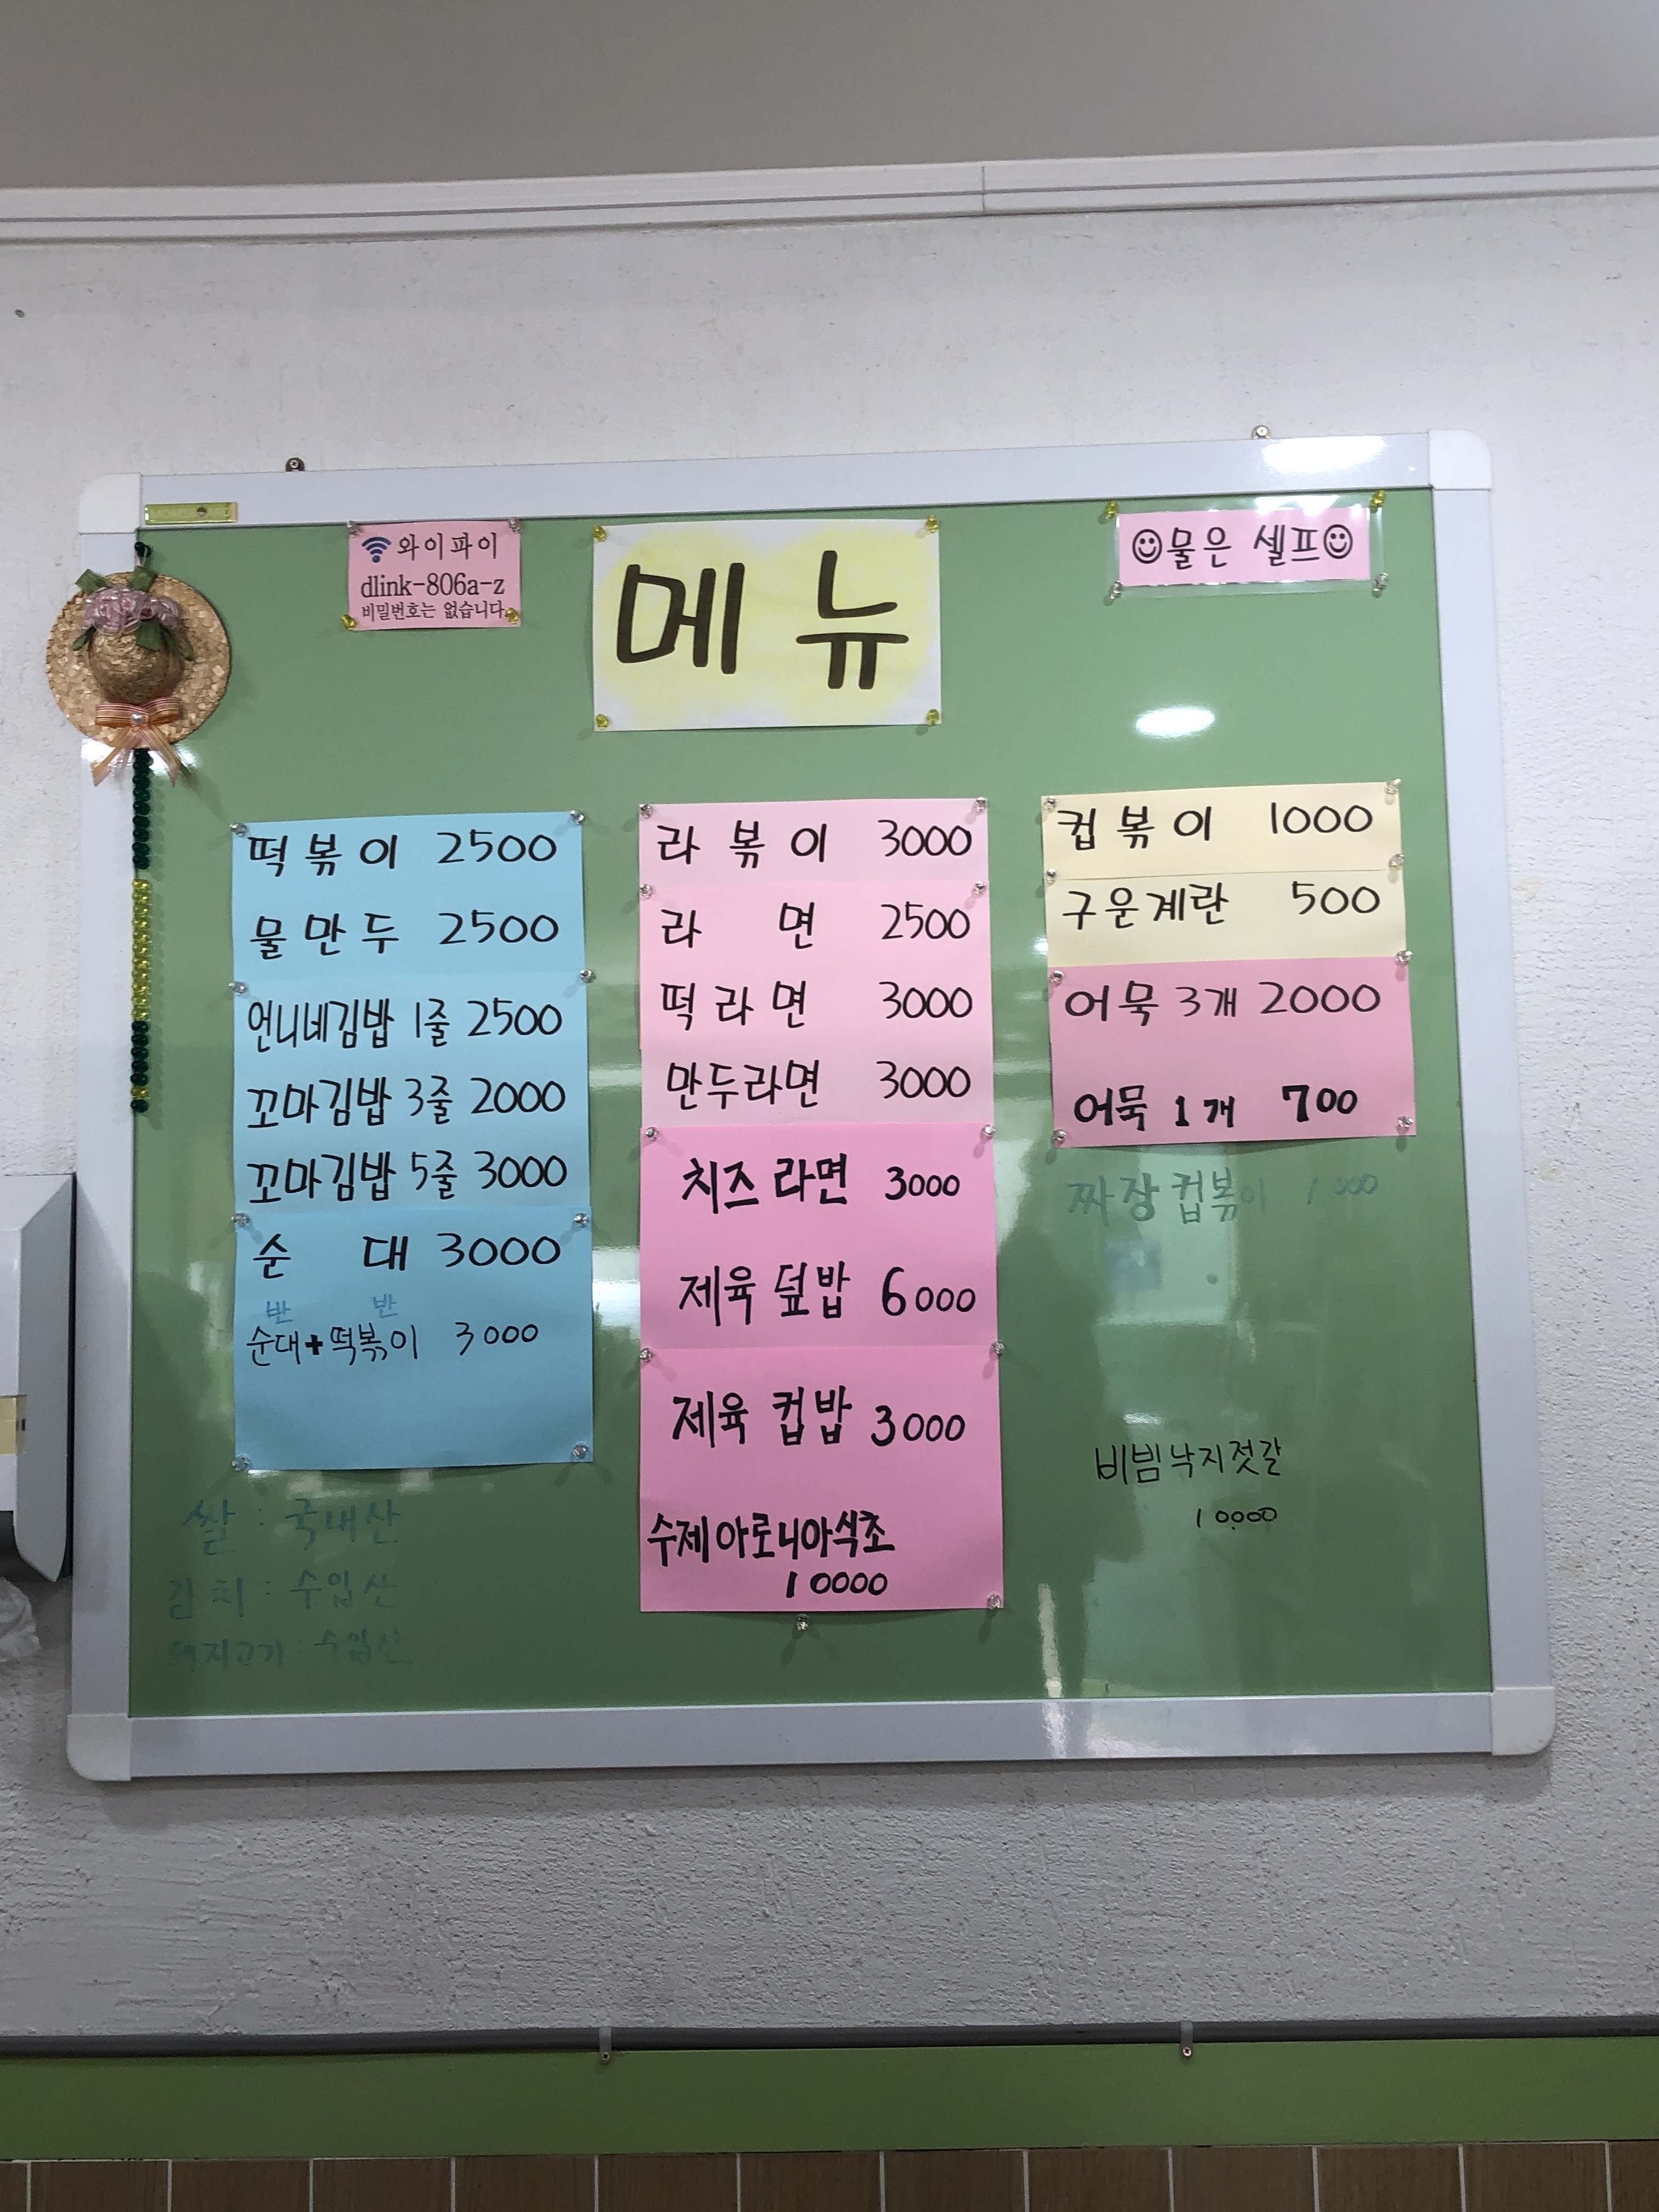 와이파이
dlink-806a-z
비밀번호는 없습니다.
메뉴
물은 셀프
떡볶이 2500
물만두 2500
언니네김밥 1줄 2500
꼬마김밥 3줄 2000
꼬마김밥 5줄 3000
순 대 3000
반 반
순대+떡볶이 3000
쌀 : 국내산
김치 : 수입산
돼지고기 : 수입산
라볶이 3000
라 면 2500
떡라면 3000
만두라면 3000
치즈라면 3000
제육덮밥 6000
제육컵밥 3000
수제아로니아식초
10000
컵볶이 1000
구운계란 500
어묵 3개 2000
어묵 1개 700
짜장컵볶이 1000
비빔낙지젓갈
10000